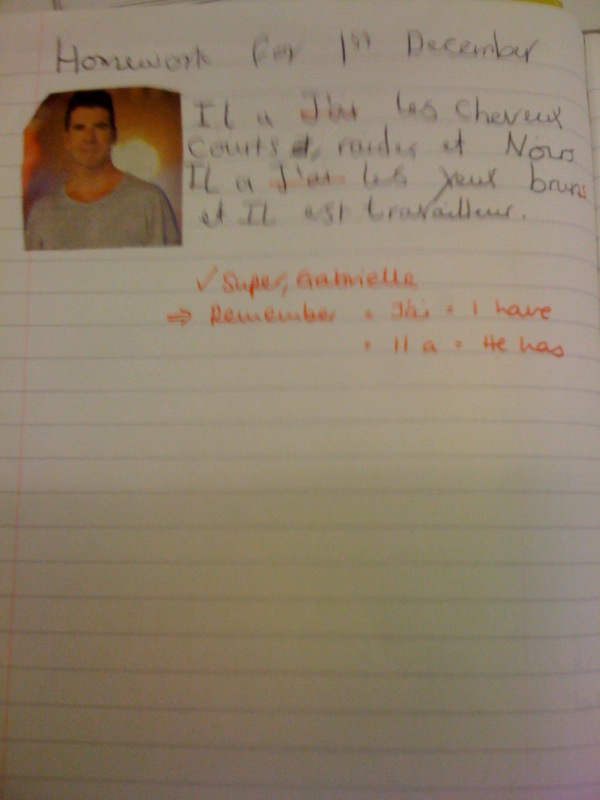 Homework for 1st December
Il a J'ai les cheveux
courts et raides et Noirs
Il a J'ai les yeux bruns
et Il est travailleur.
✓ Super, Gabrielle
⇒ Remember • J'ai = I have
• Il a = He has